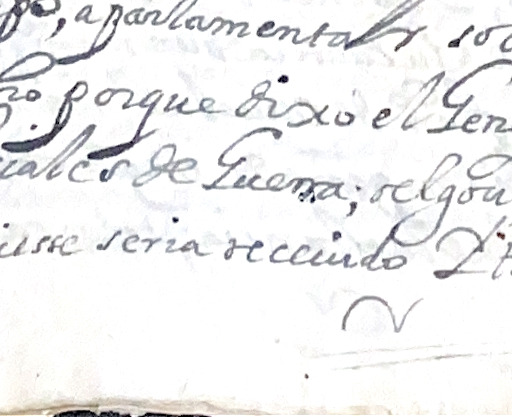 , a parlamentar so
porque dixo el Gen
uales de Guerra; selgou
iesse seria recciuido